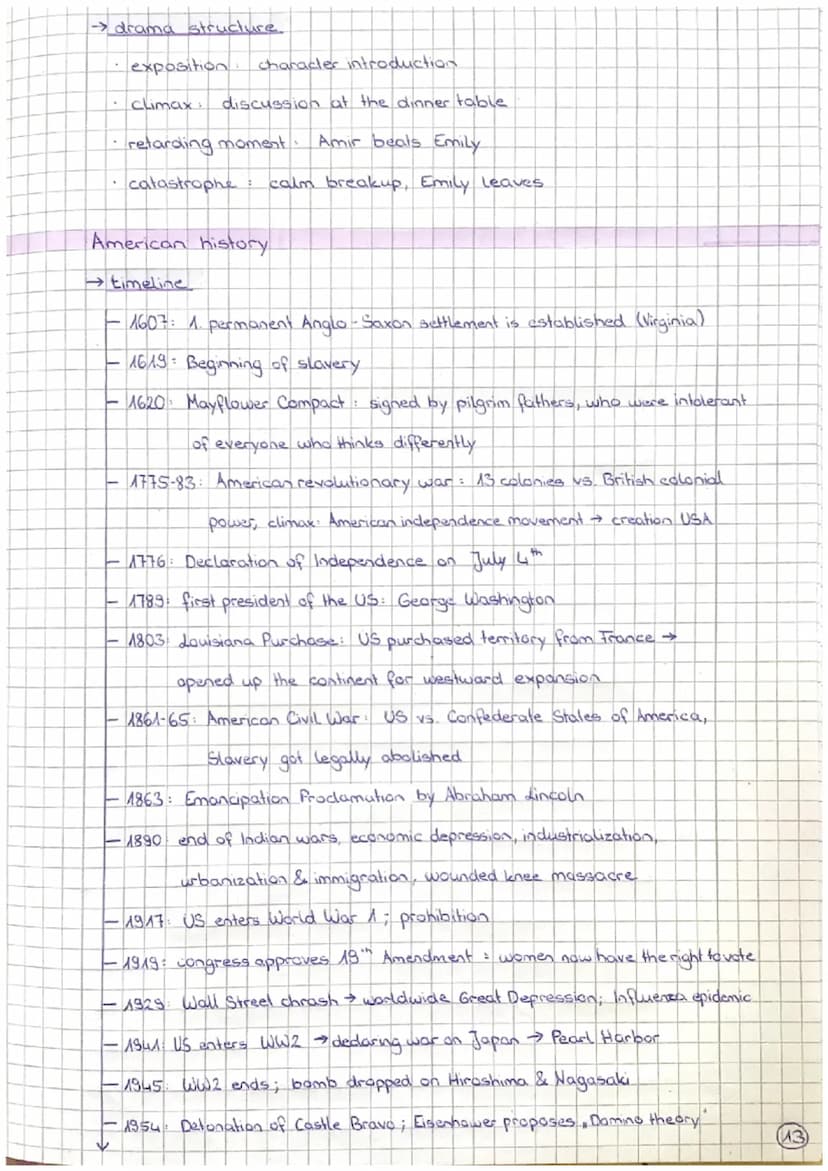 → drama structure
· exposition: character introduction
· climax: discussion at the dinner table
· retarding moment: Amir beats Emily
· catastrophe: calm breakup, Emily leaves
American history
→ timeline
- 1607: 1. permanent Anglo-Saxon settlement is established (Virginia)
- 1619: Beginning of slavery
- 1620: Mayflower Compact: signed by pilgrim fathers, who were intolerant
of everyone who thinks differently
- 1775-83: American revolutionary war: 13 colonies vs. British colonial
power, climax: American independence movement → creation USA
- 1776: Declaration of Independence on July 4th
- 1789: first president of the US: George Washington
- 1803: Louisiana Purchase: US purchased territory from France →
opened up the continent for westward expansion
- 1861-65: American Civil War: US vs. Confederate States of America,
Slavery got legally abolished
- 1863: Emancipation Proclamation by Abraham Lincoln
- 1890: end of Indian wars, economic depression, industrialization,
urbanization & immigration, wounded knee massacre
- 1917: US enters World War 1; prohibition
- 1919: congress approves 19th Amendment: women now have the right to vote
- 1929: Wall Street chrash → worldwide Great Depression; Influenza epidemic
- 1941: US enters WW2 → declaring war on Japan → Pearl Harbor
- 1945: WW2 ends; bomb dropped on Hiroshima & Nagasaki
- 1954: Detonation of Castle Bravo; Eisenhower proposes „Domino theory"
13